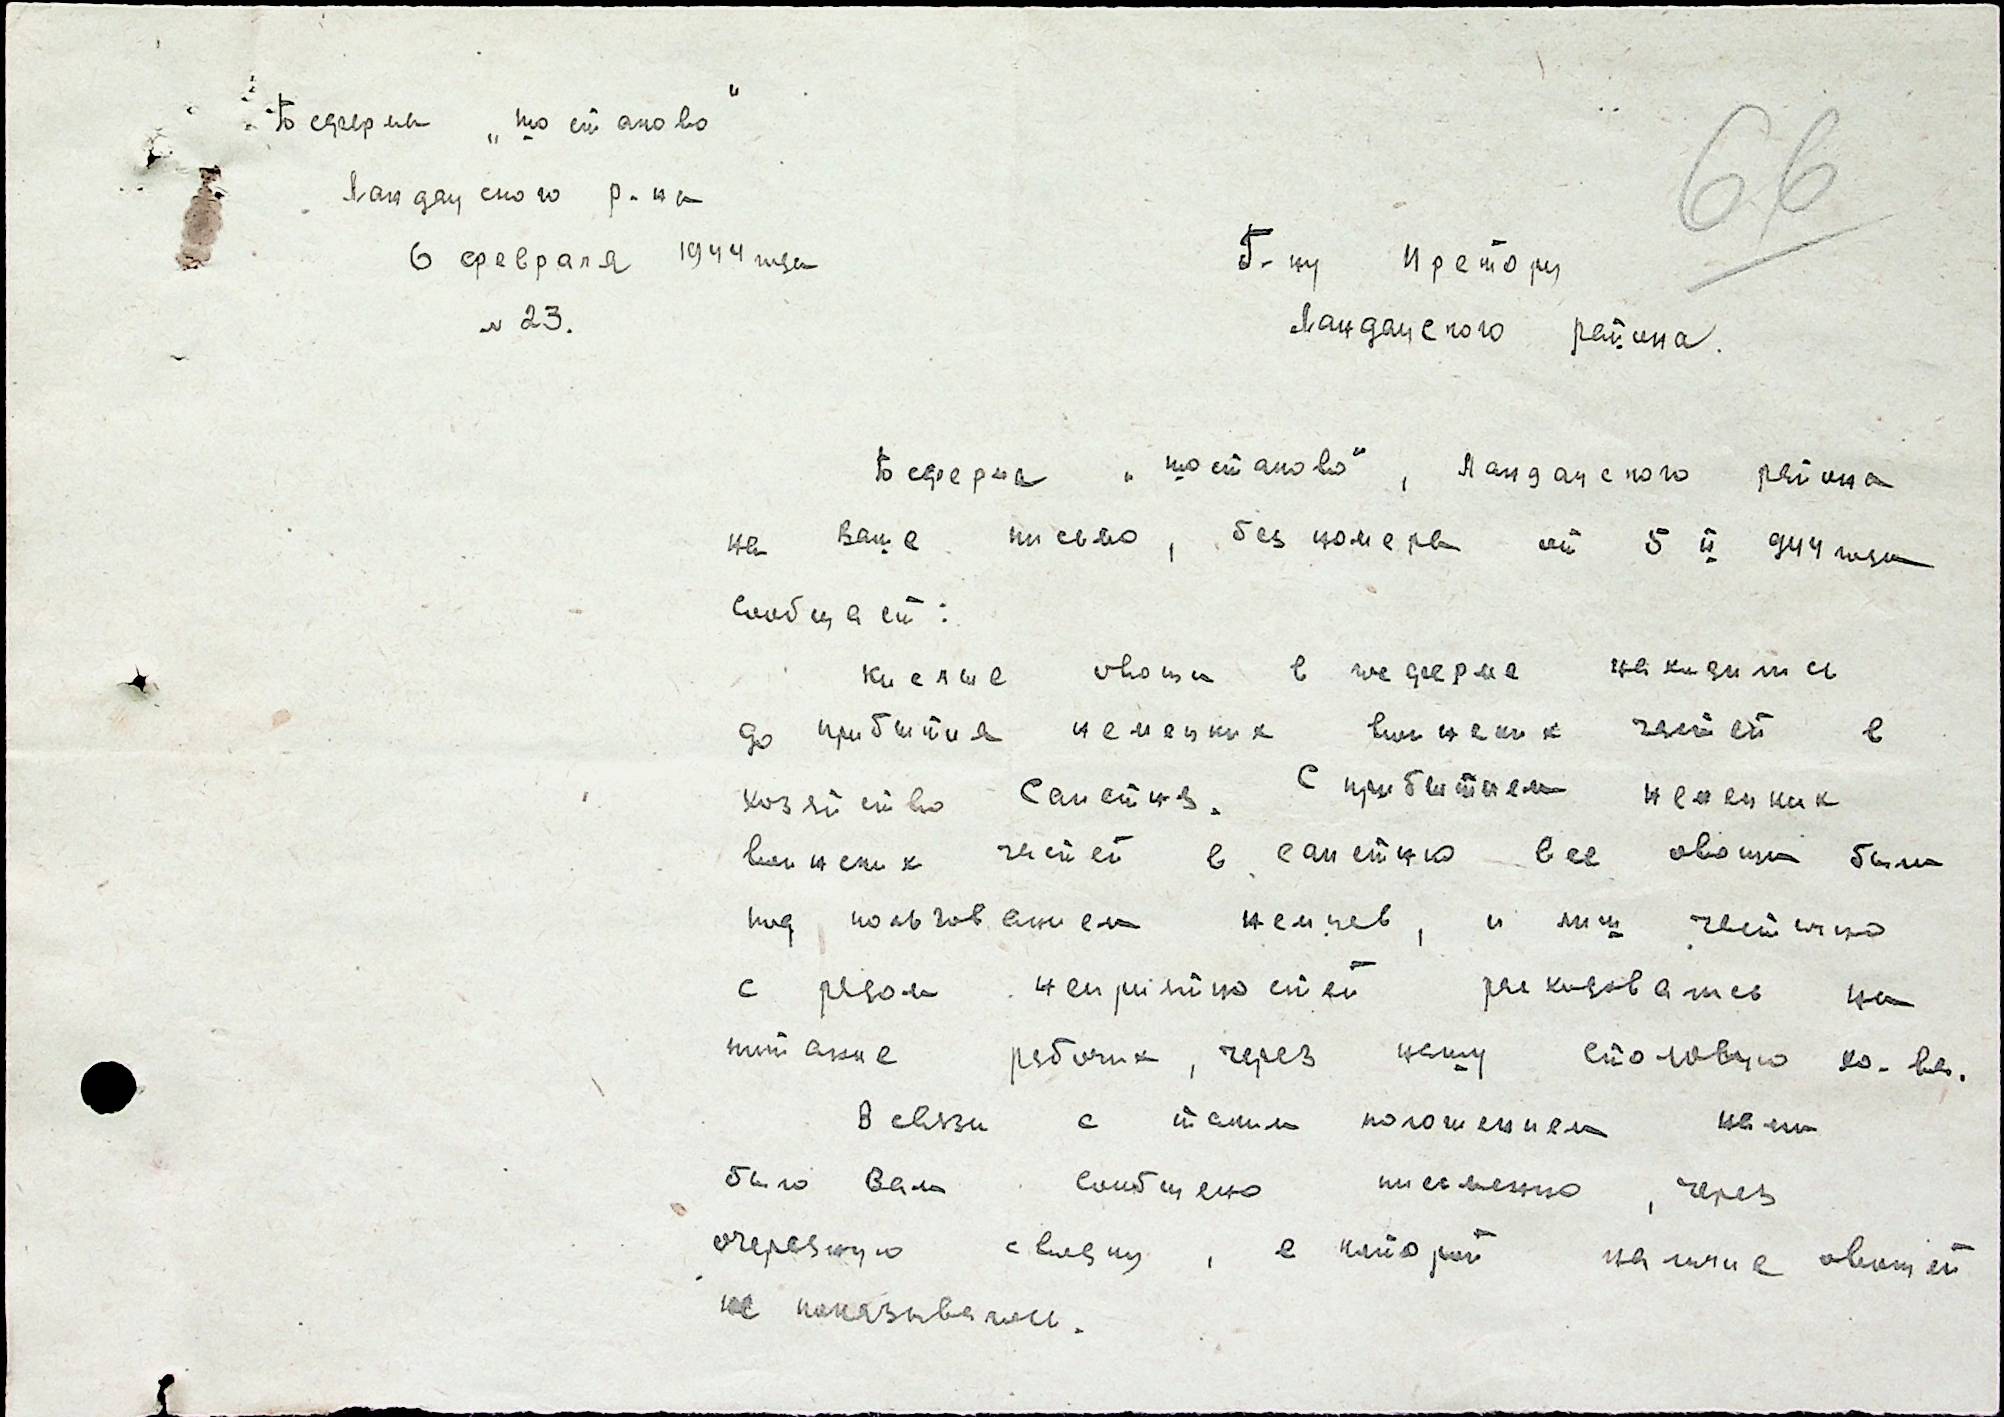 Госферма „Шостаково"
Ландауского р-на
6 февраля 1944 года
№ 23.
66
Г-ну Претору
Ландауского района.
Госферма „Шостаково", Ландауского района
на Ваше письмо, без номера от 5 II 944 года
сообщает:
Кислые овощи в госферме находились
до прибытия немецких воинских частей в
хозяйство Сапетня. С прибытием немецких
воинских частей в Сапетню все овощи были
под пользованием немцев, и лиш частично
с рядом неприятностей расходовались на
питание рабочих, через нашу столовую хо-ва.
В связи с таким положением нами
было Вам сообщено письменно, через
очередную сводку, в которой наличие овощей
не показывалось.